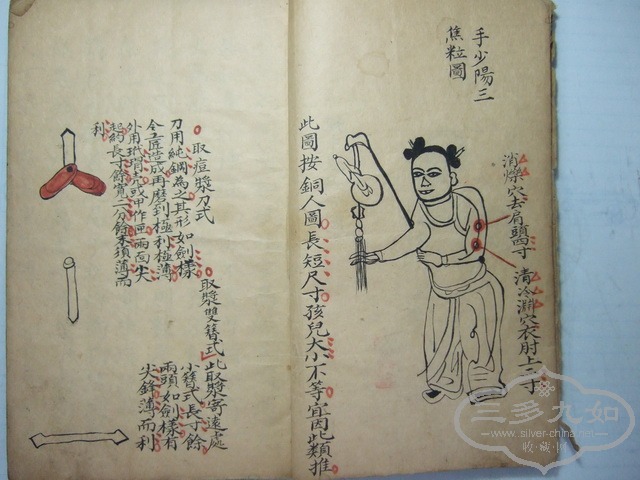 手少陽三
焦粒圖
消爍穴去肩頭四寸
清冷淵穴衣肘上二寸
此圖按銅人圖長短尺寸孩兒大小不等宜因此類推
取漿雙簪式
此取漿寄遠處
小簪式長寸餘
兩頭如劍樣有
尖鋒薄而利
取痘漿刀式
刀用純鋼為之其形如劍樣
令工匠造成再磨到極利極薄
外用玳瑁或甲作匣兩面尖
起的長寸餘寬二分餘本須薄而
利
三多九如
www.silver-china.net
收藏圈